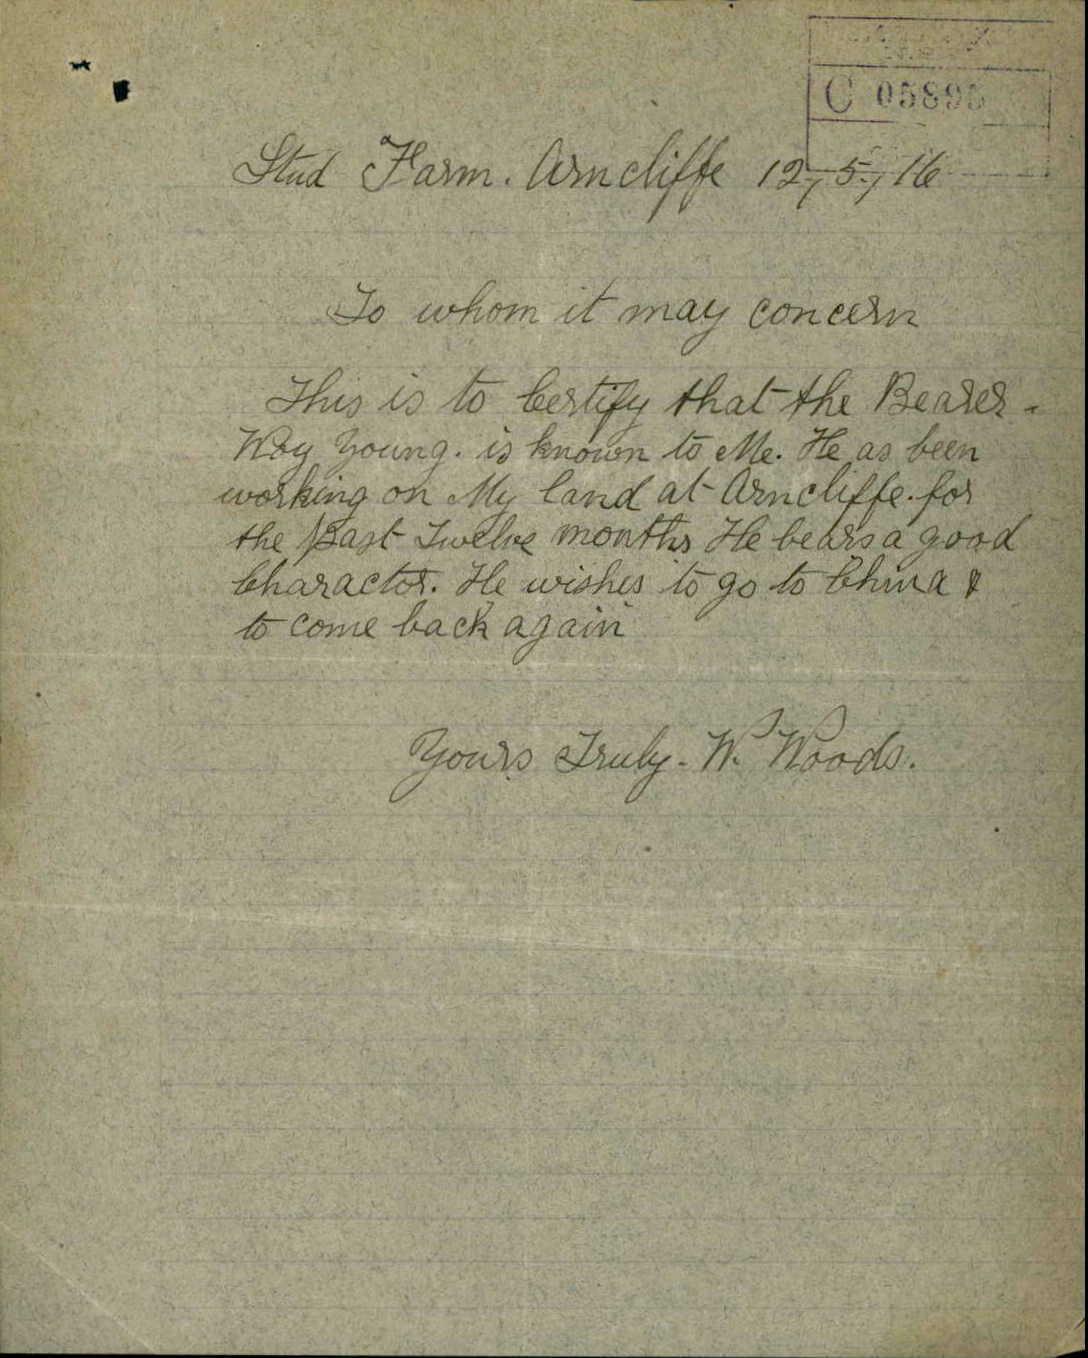 C 05895
Stud Farm. Arncliffe 12,-5-,16
To whom it may concern
This is to Certify that the Bearer -
Way Young. is known to Me. He as been
working on My land at Arncliffe. for
the Past Twelve months He bears a good
Charactor. He wishes to go to China &
to come back again
Yours Truly - W. Woods.